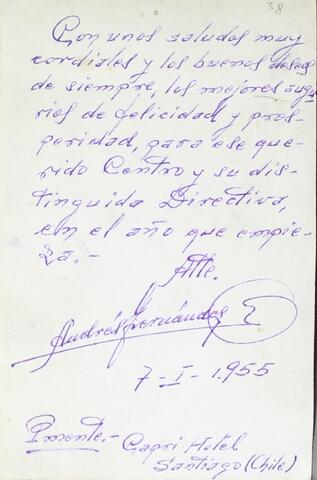 38
Con unos saludos muy
cordiales y los buenos deseos
de siempre, los mejores augu
rios de felicidad y pros-
peridad, para ese que-
rido Centro y su dis-
tinguida Directiva,
en el año que empie-
za.-
Atte.
Andrés Fernández
7-I-1.955
Pmente.- Capri Hotel
Santiago (Chile)